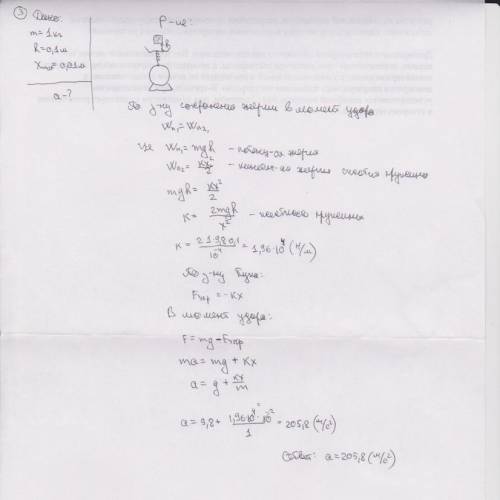 ③ Дано:
m = 1 кг
h = 0,1 м
Xmax = 0,01 м
a - ?
Р-ие:
По з-ну сохранения энергии в момент удара
Wп₁ = Wп₂,
где Wп₁ = mgh - потенц-ая энергия
Wп₂ = kx²/2 - энергия сжатия пружины
mgh = kx²/2
k = 2mgh/x² - жесткость пружины
k = 2·1·9,8·0,1/10⁻⁴ = 1,96·10⁴ (Н/м)
По з-ну Гука:
Fупр = -kx
В момент удара:
F = mg - Fупр
ma = mg + kx
a = g + kx/m
a = 9,8 + 1,96·10⁴·10⁻²/1 = 205,8 (м/с²)
Ответ: a = 205,8 (м/с²)